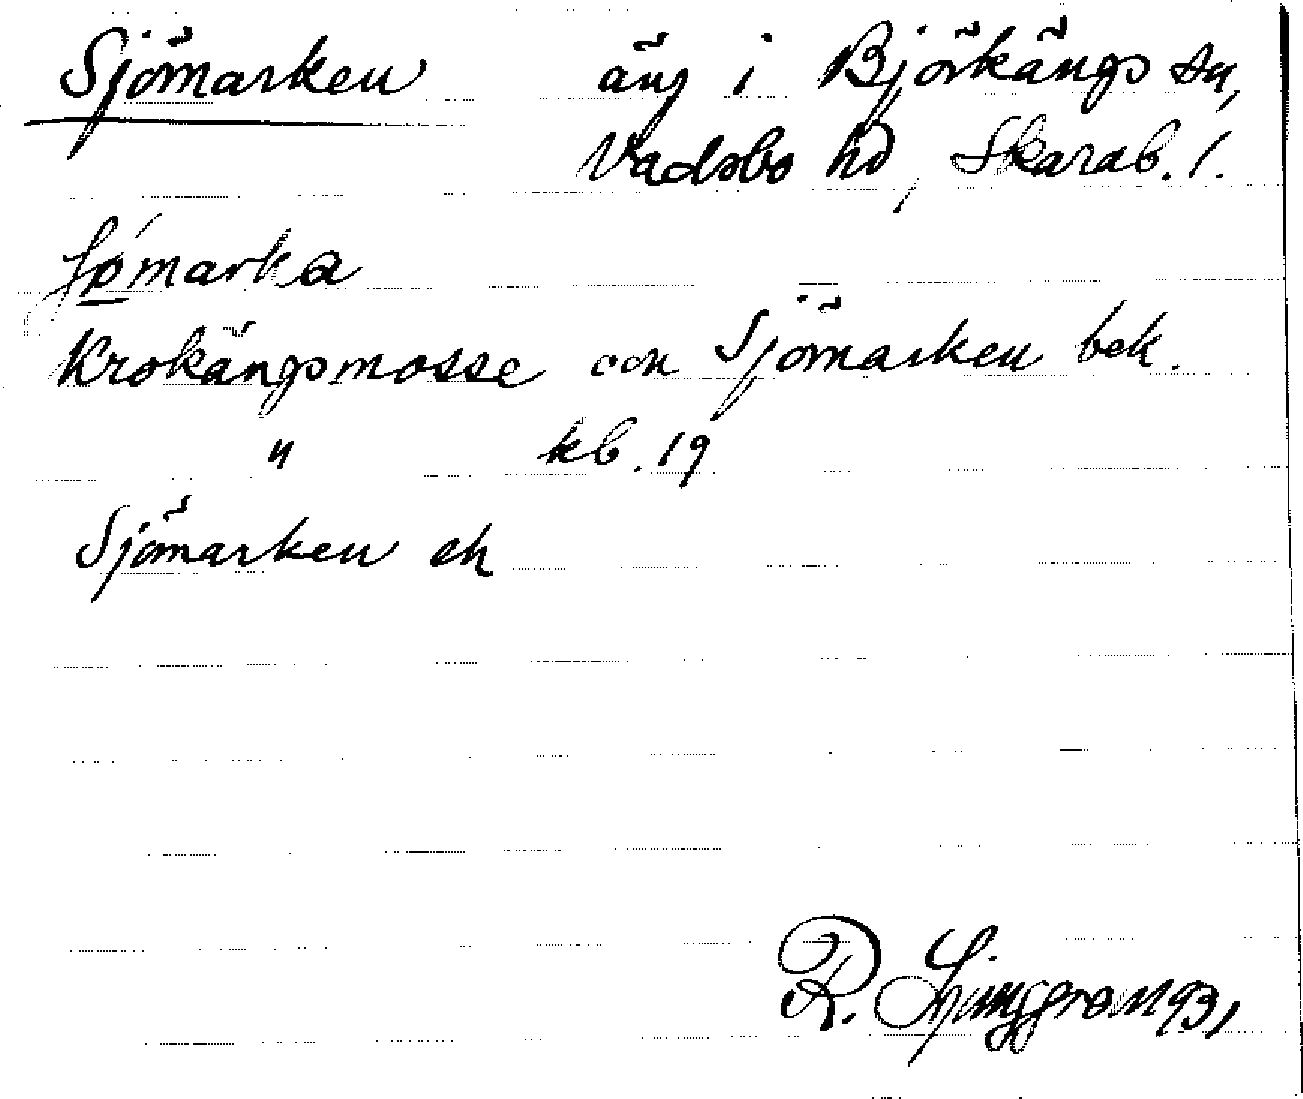 Sjömarken äng i Björkängs sn,
Vadsbo hd, Skarab. l.
ʃö́marka
Krokängsmosse och Sjömarken bek.
" kb. 19
Sjömarken ek
R. Ljunggren 1931